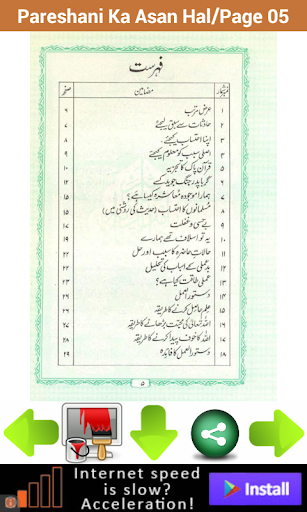 Pareshani Ka Asan Hal/Page 05
فہرست
نمبر شمار مضامین صفحہ
۱ عرض مرتب ۶
۲ حادثات سے سبق لیجئے ۷
۳ اپنا احتساب کیجئے
۴ اصلی سبب کو معلوم کیجئے
۵ قرآن پاک کا تجزیہ
۶ پر جنگ
۷ ہمارا موجودہ معاشرہ کیسا ہے؟
۸ مسلمانوں کا احتساب (حدیث کی روشنی میں) ۱۵
۹ بے حسی و غفلت ۱۷
۱۰ یہ تو اسلاف تھے ہمارے ۱۸
۱۱ حالات حاضرہ کا سبب اور حل
۱۲ بدعملی کے اسباب کی تحلیل
۱۳ عملی طاقت کیا ہے؟
۱۴ دستور العمل
۱۵ علم حاصل کرنے کا طریقہ
۱۶ اللہ تعالیٰ کی محبت بڑھانے کا طریقہ
۱۷ اللہ کا خوف پیدا کرنے کا طریقہ ۲۸
۱۸ دستور العمل کا فائدہ ۲۹
۵
Internet speed
is slow?
Acceleration!
Install